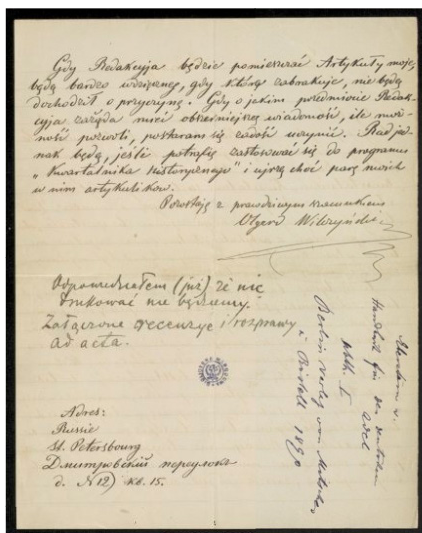 Gdy Redakcyja będzie pomieszczać Artykuły moje,
będę bardzo wdzięcznej, gdy którą zabrakuje, nie będę
dochodził o przyczynę. Gdy o jakim przedmiocie Redak-
cyja zażąda mieć obszerniejszą wiadomość, ile moż-
ność pozwoli, postaram się zadość uczynić. Rad je-
nak będę, jeśli potrafię zastosować się do programu
„Kwartalnika Historycznego" i ujrzę choć parę moich
w nim artykulików.
Pozostaję z prawdziwym szacunkiem
Olgerd Wilczyński
Odpowiedziałem (już) że nic
drukować nie będziemy.
Załączone recenzye i rozprawy
ad acta.
Adres:
Russie
St. Petersbourg
Дмитровский переулокъ
д. N 12) кв. 15.
Handbuch für den deutschen
Adel
Abth. I
Berlin Verlag von
1890